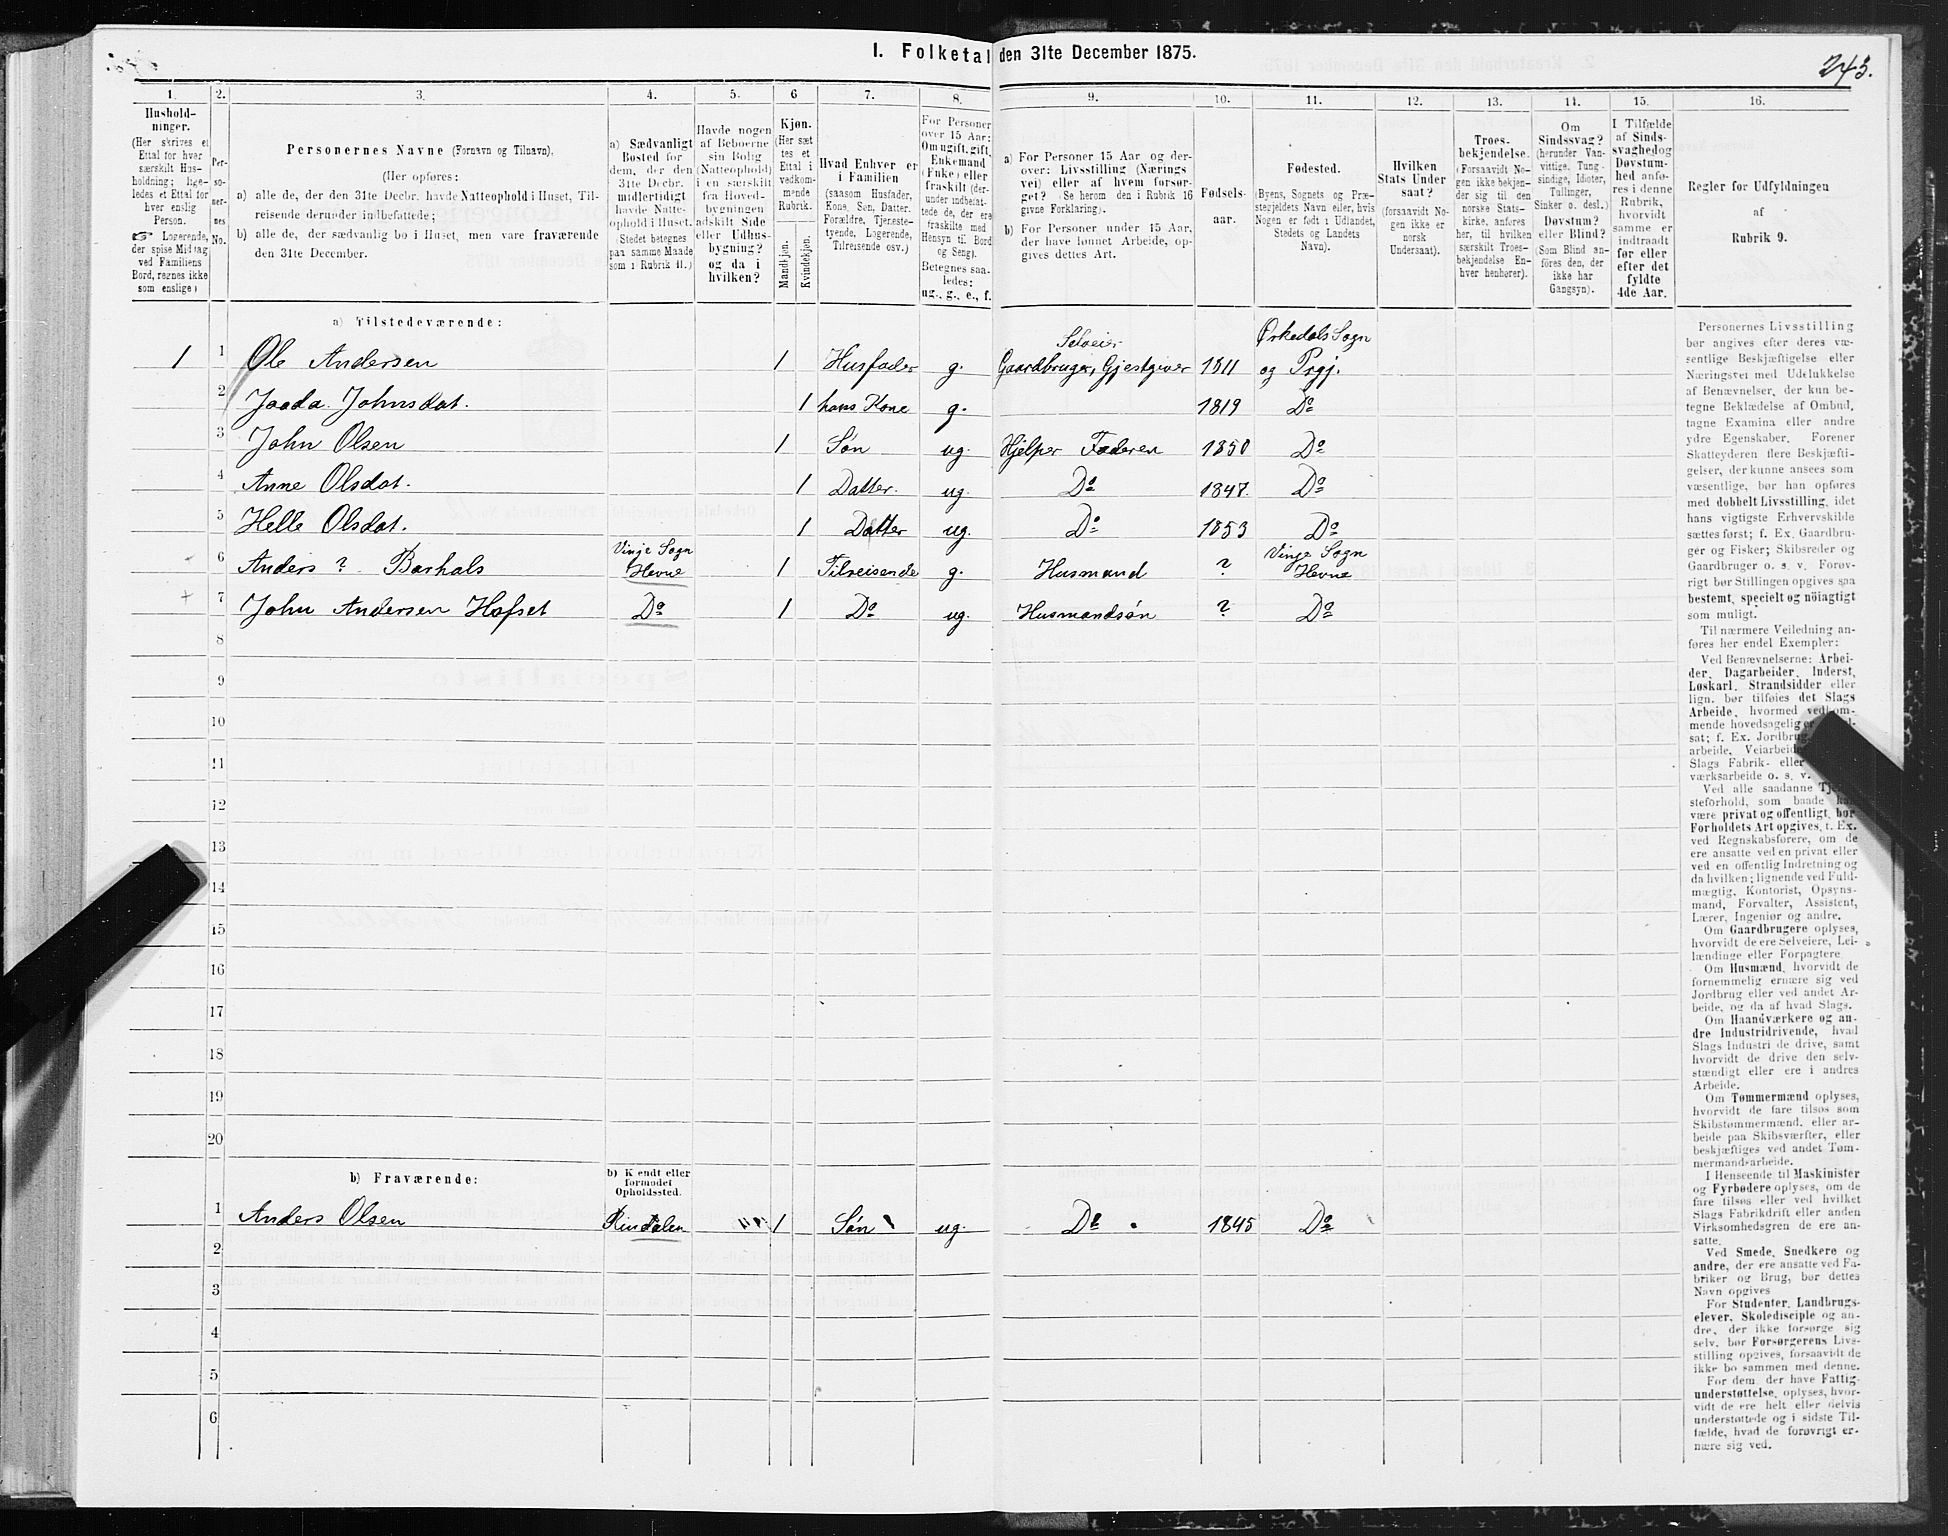 I. Folketal den 31te December 1875.
243.
1.
2.
3.
4.
5.
6
7.
8.
9.
10.
11.
12.
13.
14.
15.
16.
Hushold-
ninger.
(Her skrives et
Ettal for hver
særskilt Hus-
holdning; lige-
ledes et Ettal for
hver enslig
Person.
☞ Logerende,
der spise Middag
ved Familiens
Bord, regnes ikke
som enslige)
Per-
so-
ner-
nes
No.
Personernes Navne (Fornavn og Tilnavn).
(Her opføres:
a) alle de, der den 31te Decbr. havde Natteophold i Huset, Til-
reisende derunder indbefattede;
b) alle de, der sædvanlig bo i Huset, men vare fraværende
den 31te December.
a) Sædvanligt
Bosted for
dem, der den
31te Decbr.
midlertidigt
havde Natte-
ophold i Huset.
(Stedet betegnes
paa samme Maade
som i Rubrik 11.)
Havde nogen
af Beboerne
sin Bolig
(Natteophold)
i en særskilt
fra Hoved-
bygningen
adskilt Side
eller Udhus-
bygning?
og da i
hvilken?
Kjøn.
(Her sæt
tes et
Ettal i
vedkom-
mende
Rubrik.
Mandkjøn.
Kvindekjøn.
Hvad Enhver er
i Familien
(saasom Husfader,
Kone, Søn, Datter.
Forældre, Tjeneste-
tyende, Logerende,
Tilreisende osv.)
For Personer
over 15 Aar:
Om ugift, gift,
Enkemand
(Enke) eller
fraskilt (der-
under indbefat-
tede de, der ere
fraskilte med
Hensyn til Bord
og Seng).
Betegnes saa-
ledes:
ug., g., e., f.
a) For Personer 15 Aar og der-
over: Livsstilling (Nærings
vei) eller af hvem forsør-
get? (Se herom den i Rubrik 16
givne Forklaring).
b) For Personer under 15 Aar,
der have lønnet Arbeide, op-
gives dettes Art.
Fødsels-
aar.
Fødested.
(Byens, Sognets og Præ-
stegjeldets Navn eller, hvis
Nogen er født i Udlandet,
Stedets og Landets
Navn).
Hvilken
Stats Under
saat?
(forsaavidt No-
gen ikke er
norsk
Undersaat).
Troes-
bekjendelse.
(Forsaavidt No-
gen ikke bekjen-
der sig til den
norske Stats-
kirke, anføres
her, til hvilken
særskilt Troes-
bekjendelse En-
hver henhører).
Om
Sindssvag?
(herunder Van-
vittige, Tung-
sindige, Idioter,
Tullinger,
Sinker o. desl.)
Døvstum?
eller Blind?
(Som Blind an-
føres den, der
ikke har
Gangsyn).
I Tilfælde
af Sinds-
svaghed og
Døvstum-
hed anfø-
res i denne
Rubrik,
hvorvidt
samme er
indtraadt
før eller
efter det
fyldte
4de Aar.
Regler for Udfyldningen
af
Rubrik 9.
a) Tilstedeværende:
Selveier
Ørkedals Sogn
1 1 Ole Andersen 1 Husfader g. Gaardbruger, Gjestgiver 1811 og Prgj.
2 Johnsdat. 1 hans Kone g. 1819 Do
3 John Olsen 1 Søn ug. Hjelper Faderen 1850 Do
4 Anne Olsdat. 1 Datter. ug. Do 1847. Do
5 Helle Olsdat. 1 Datter ug. Do 1853 Do
Vinje Sogn
Vinje Sogn
6 Anders ? Barhals Hevne 1 Tilreisende g. Husmand ? Hevne
7 John Andersen Hofset Do 1 Do ug. Husmandsøn ? Do
8
9
10
11
12
13
14
15
16
17
18
19
20
b) Fraværende:
b) Kendt eller
formodet
Opholdssted.
1 Anders Olsen Rindalen 1 Søn ug. Do 1845 Do
2
3
4
5
6
Personernes Livsstilling
bør angives efter deres væ-
sentlige Beskjæftigelse eller
Næringsvei med Udelukkelse
af Benævnelser, der kun be-
tegne Beklædelse af Ombud,
tagne Examina eller andre
ydre Egenskaber. Forener
Skatteyderen flere Beskjæfti-
gelser, der kunne ansees som
væsentlige, bør han opføres
med dobbelt Livsstilling, idet
hans vigtigste Erhvervskilde
sættes først; f. Ex. Gaardbru-
ger og Fisker; Skibsreder og
Gaardbruger o. s. v. Forøv-
rigt bør Stillingen opgives saa
bestemt, specielt og nöiagtigt
som muligt.
Til nærmere Veiledning an-
føres her endel Exempler:
Ved Benævnelserne: Arbei-
der, Dagarbeider, Inderst,
Løskarl, Strandsidder eller
lign. bør tilføies det Slags
Arbeide, hvormed vedkom-
mende hovedsagelig er
sat; f. Ex. Jordbrug.
arbeide, Veiarbeide
Slags Fabrik- eller
værksarbeide o. s. v.
Ved alle saadanne
steforhold, som baade
være privat og offentligt, bør
Forholdets Art opgives, t. Ex.
ved Regnskabsførere, om de
ere ansatte ved en privat eller
ved en offentlig Indretning og
da hvilken; lignende ved Fuld-
mægtig, Kontorist, Opsyns-
mand, Forvalter, Assistent,
Lærer, Ingeniør og andre.
Om Gaardbrugere oplyses,
hvorvidt de ere Selveiere, Lei-
lændinge eller Forpagtere.
Om Husmænd, hvorvidt de
fornemmelig ernære sig ved
Jordbrug eller ved andet Ar-
beide, og da af hvad Slags.
Om Haandværkere og an-
dre Industridrivende, hvad
Slags Industri de drive, samt
hvorvidt de drive den selv-
stændigt eller ere i andres
Arbeide.
Om Tømmermænd oplyses,
hvorvidt de fare tilsøs som
Skibstømmermænd, eller ar-
beide paa Skibsværfter, eller
beskjæftiges ved andet Tøm-
mermandsarbeide.
I Henseende til Maskinister
og Fyrbødere oplyses, om de
fare tilsøs eller ved hvilket
Slags Fabrikdrift eller anden
Virksomhedsgren de ere an-
satte.
Ved Smede, Snedkere og
andre, der ere ansatte ved Fa-
briker og Brug, bør dettes
Navn opgives
For Studenter, Landbrugs-
elever, Skoledisciple og an-
dre, der ikke forsørge sig
selv, bør Forsørgerens Livs-
stilling opgives, forsaavidt de
ikke bo sammen med denne.
For dem, der have Fattig-
understøttelse, oplyses, hvor-
vidt de ere helt eller delvis
understøttede og i sidste Til-
fælde, hvad de forøvrigt er-
nære sig ved.